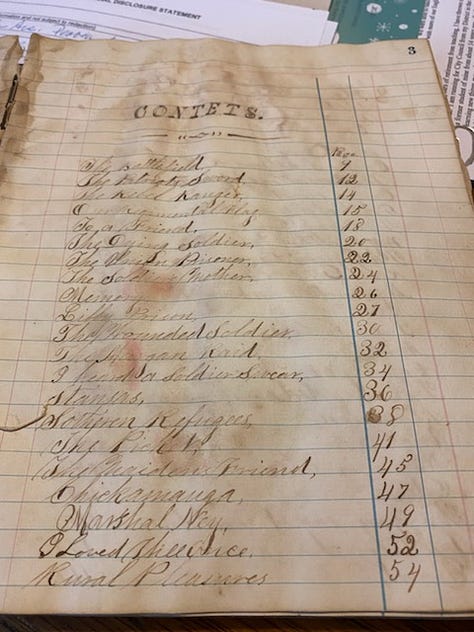 AL DISCLOSURE STATEMENT
3
CONTETS.
Page
The Battlefield, 9
The Patriots Sword, 12
The Rebel Ranger, 14
Our Regimental Flag, 15
To a Friend, 18
The Dying Soldier, 20
The Union Prisoner, 22
The Soldiers Mother, 24
Memory, 26
Libby Prison, 27
The Wounded Soldier, 30
The Morgan Raid, 32
I heard a Soldier Swear, 34
Stanzas, 36
Sothern Refugees, 38
The Picket, 41
The Maidens Friend, 45
Chickamauga, 47
Marshal Ney, 49
I Loved Thee Once, 52
Rural Pleasures 54